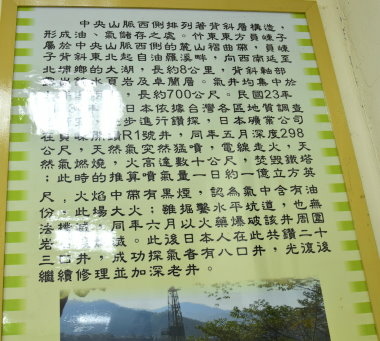 中央山脈西側排列著背斜層構造，
形成油、氣儲存之處。竹東東方員崠子
屬於中央山脈西側的麓山褶曲帶，員崠
子背斜東北起自油羅溪畔，向西南延至
北埔鄉的大湖，長約8公里，背斜軸部
頁岩及卓蘭層。氣井均集中於
，長約700公尺。民國23年
日本依據台灣各區地質調查
步進行鑽探，日本礦業公司
在員崠 鑽R1號井，同年五月深度298
公尺，天然氣突然猛噴，電線走火，天
然氣燃燒，火高達數十公尺，焚毀鐵塔
；此時的推算噴氣量一日約一億立方英
尺，火焰中帶有黑煙，認為氣中含有油
份，此場大火；雖掘鑿水平坑道，也無
法 ，同年六月以火藥爆破該井周圍
岩 。此後日本人在此共鑽二十
三口井，成功探氣各有八口井，光復後
繼續修理並加深老井。